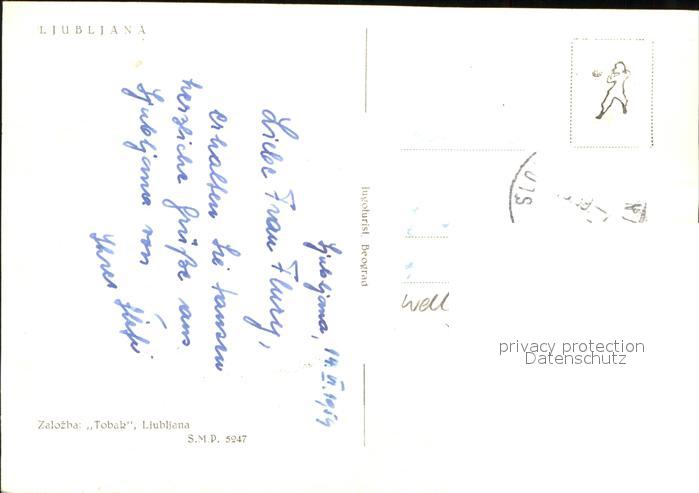 LJUBLJANA
Ljubljana, 14.VI.1959
Liebe Frau Flury,
erhalten Sie tausend
herzliche Grüße aus
Ljubljana von
Ihrer
Jugoturist Beograd
Well
privacy protection
Datenschutz
Založba: „Tobak", Ljubljana
S.M.P. 5247